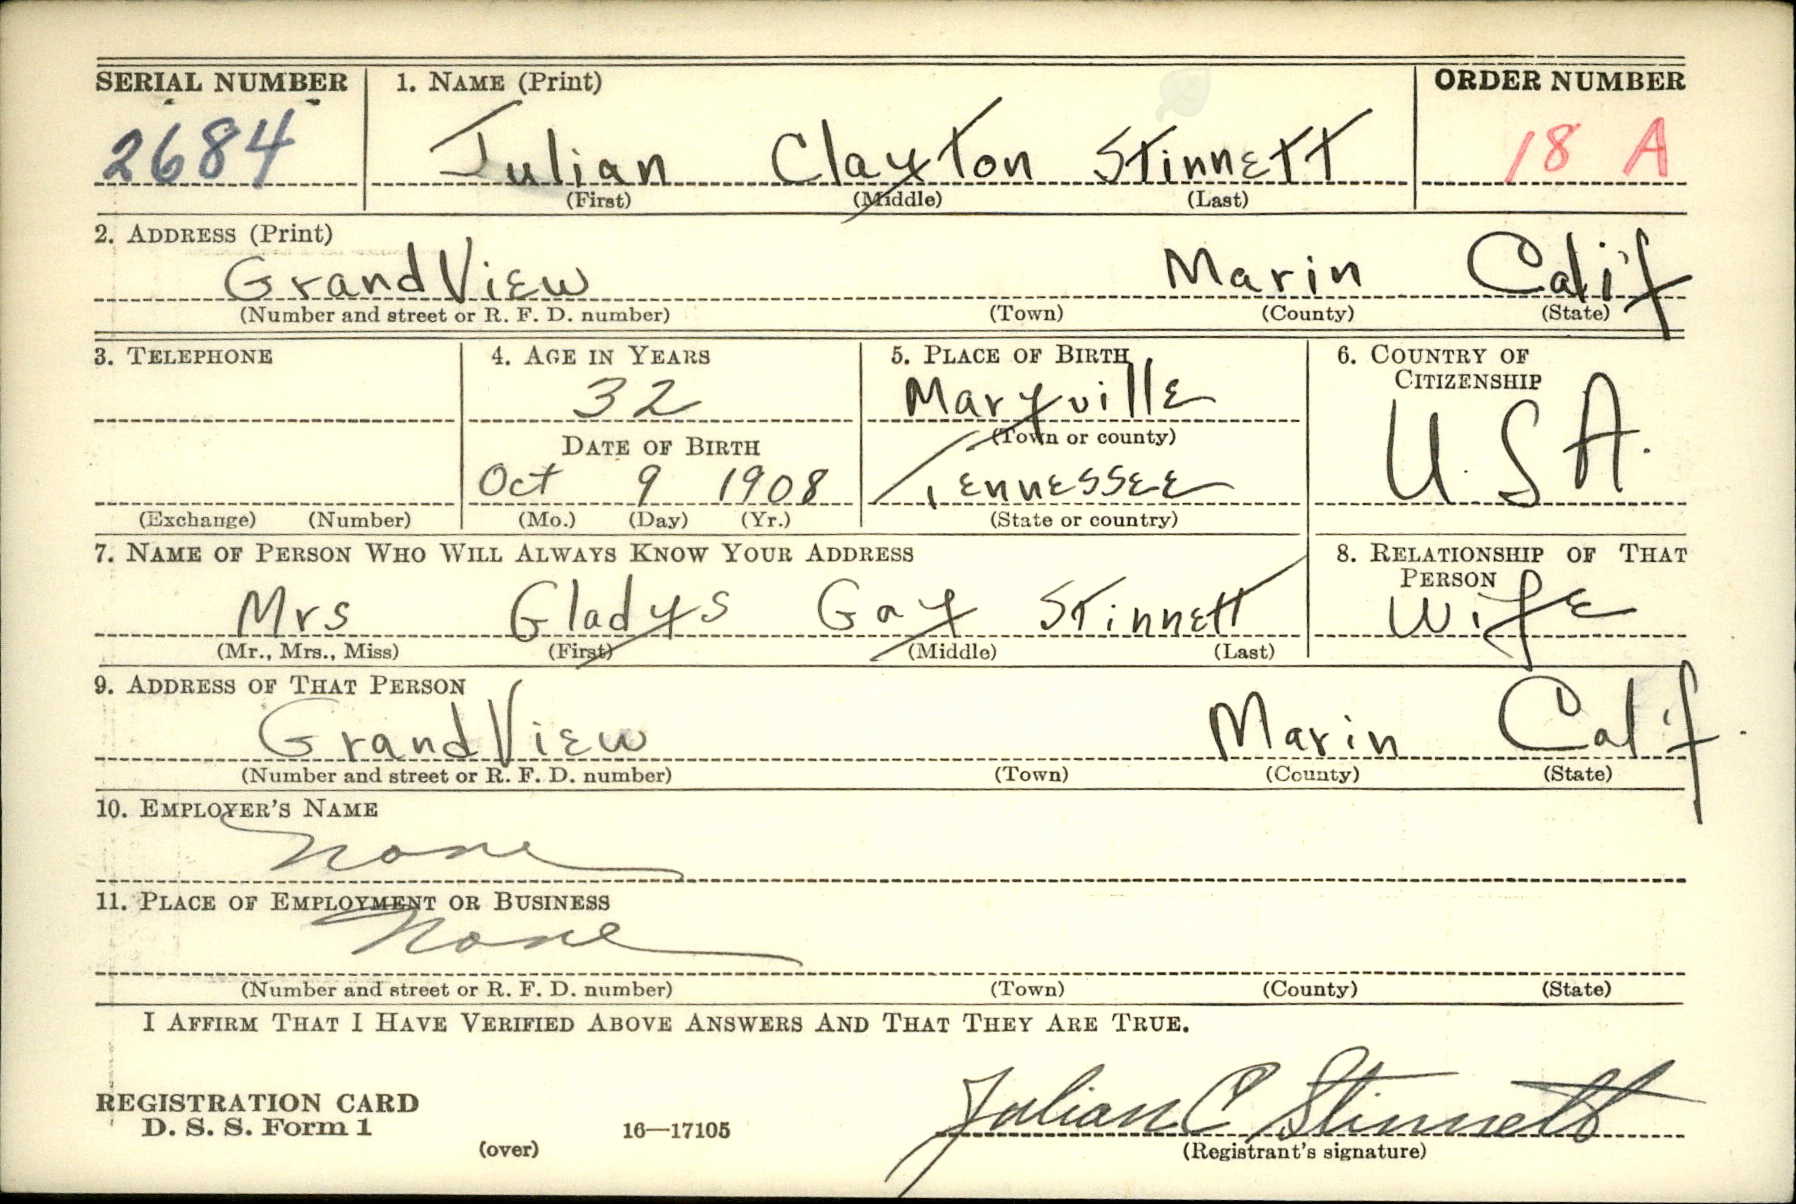 SERIAL NUMBER 1. NAME (Print) ORDER NUMBER
2684 Julian Clayton Stinnett 18 A
(First) (Middle) (Last)
2. ADDRESS (Print)
Grand View Marin Calif
(Number and street or R. F. D. number) (Town) (County) (State)
3. TELEPHONE 4. AGE IN YEARS 5. PLACE OF BIRTH 6. COUNTRY OF
CITIZENSHIP
32 Maryville U. S A.
DATE OF BIRTH (Town or county)
Oct 9 1908 Tennessee
(Exchange) (Number) (Mo.) (Day) (Yr.) (State or country)
7. NAME OF PERSON WHO WILL ALWAYS KNOW YOUR ADDRESS 8. RELATIONSHIP OF THAT
PERSON
Mrs Gladys Gay Stinnett Wife
(Mr., Mrs., Miss) (First) (Middle) (Last)
9. ADDRESS OF THAT PERSON
Grand View Marin Calif.
(Number and street or R. F. D. number) (Town) (County) (State)
10. EMPLOYER'S NAME
None
11. PLACE OF EMPLOYMENT OR BUSINESS
None
(Number and street or R. F. D. number) (Town) (County) (State)
I AFFIRM THAT I HAVE VERIFIED ABOVE ANSWERS AND THAT THEY ARE TRUE.
REGISTRATION CARD
D. S. S. Form 1 16—17105 Julian C Stinnett
(over) (Registrant's signature)